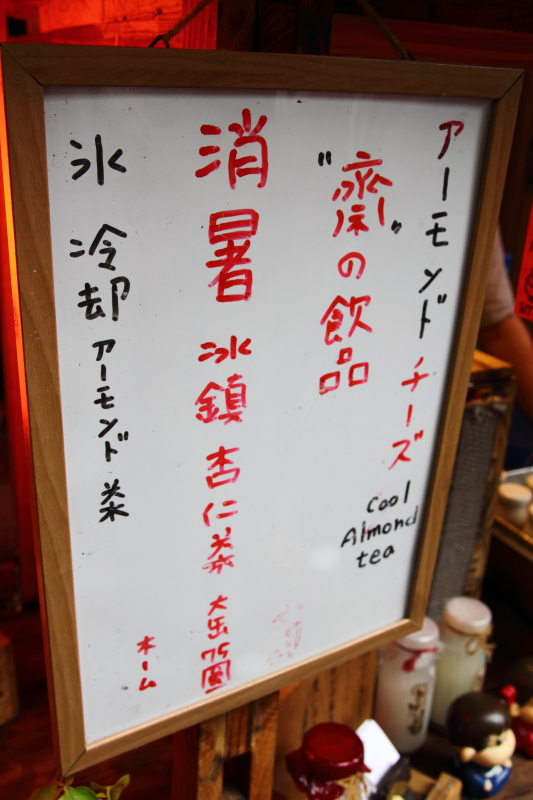 アーモンド チーズ
cool
Almond
tea
"齋"の飲品
消暑 冰鎮 杏仁茶 大出
氷 冷却 アーモンド 茶
ホーム